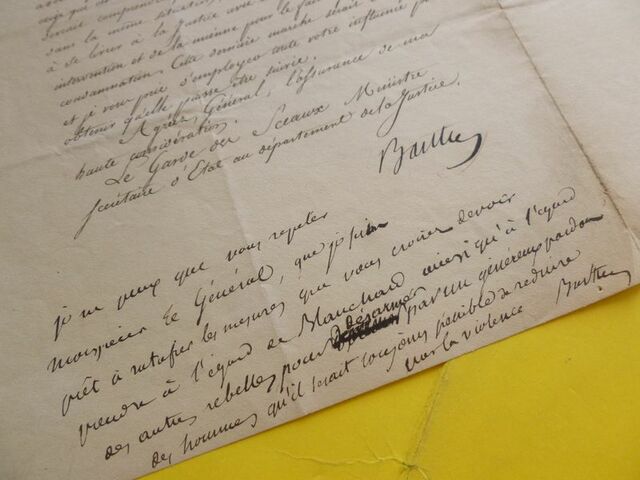 dans la même situation,
à se livrer à la Justice avec
intervention et de la mienne pour le faire
condamnation. Cette dernière marche serait
et je vous prie d'employer toute votre influence pour
obtenir qu'elle puisse être suivie.
Agréez, Général, l'assurance de ma
haute considération.
Le Garde des Sceaux Ministre
Secrétaire d'Etat au département de la Justice.
Barthe
je ne peux que vous repeter
Monsieur le Général, que je suis
prêt à ratifier les mesures que vous croirez devoir
prendre à l'egard de Blanchard ainsi qu'à l'egard
des autres rebelles pour désarmer par un généreux pardon
des hommes qu'il serait toujours possible de reduire
par la violence Barthe